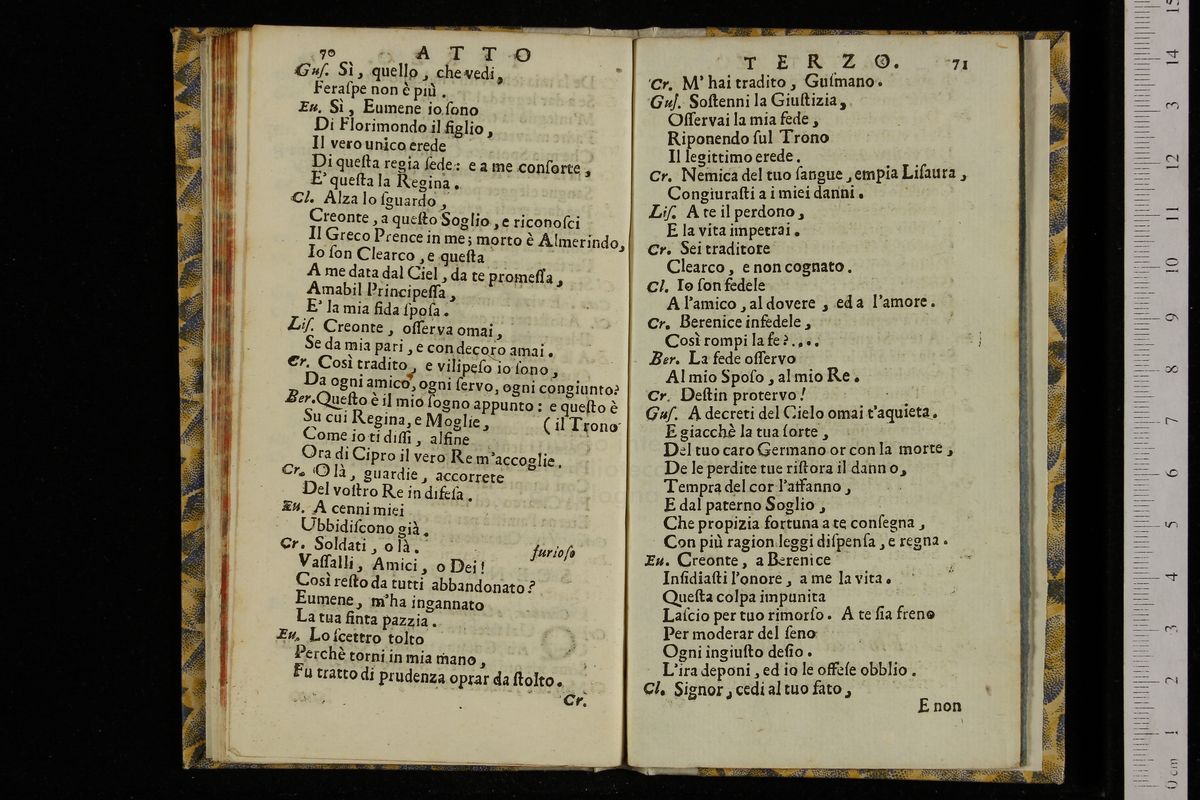 70 ATTO
Guſ. Sì, quello, che vedi,
Feraſpe non è più.
Eu. Sì, Eumene io ſono
Di Florimondo il figlio,
Il vero unico erede
Di queſta regia ſede: e a me conſorte,
E' queſta la Regina.
Cl. Alza lo ſguardo,
Creonte, a queſto Soglio, e riconoſci
Il Greco Prence in me; morto è Almerindo,
Io ſon Clearco, e queſta
A me data dal Ciel, da te promeſſa,
Amabil Principeſſa,
E' la mia fida ſpoſa.
Liſ. Creonte, oſſerva omai,
Se da mia pari, e con decoro amai.
Cr. Così tradito, e vilipeſo io ſono,
Da ogni amico, ogni ſervo, ogni congiunto?
Ber. Queſto è il mio ſogno appunto: e queſto è
Su cui Regina, e Moglie, (il Trono
Come io ti diſſi, alfine
Ora di Cipro il vero Re m'accoglie.
Cr. Olà, guardie, accorrete
Del voſtro Re in difeſa.
Eu. A cenni miei
Ubbidiſcono già.
Cr. Soldati, o là. furioſo
Vaſſalli, Amici, o Dei!
Così reſto da tutti abbandonato?
Eumene, m'ha ingannato
La tua finta pazzia.
Eu. Lo ſcettro tolto
Perchè torni in mia mano,
Fu tratto di prudenza oprar da ſtolto.
Cr.
TERZO. 71
Cr. M'hai tradito, Guſmano.
Guſ. Soſtenni la Giuſtizia,
Oſſervai la mia fede,
Riponendo ſul Trono
Il legittimo erede.
Cr. Nemica del tuo ſangue, empia Liſaura,
Congiuraſti a i miei danni.
Liſ. A te il perdono,
E la vita impetrai.
Cr. Sei traditore
Clearco, e non cognato.
Cl. Io ſon fedele
A l'amico, al dovere, ed a l'amore.
Cr. Berenice infedele,
Così rompi la fe?....
Ber. La fede oſſervo
Al mio Spoſo, al mio Re.
Cr. Deſtin protervo!
Guſ. A decreti del Cielo omai t'aquieta.
E giacchè la tua ſorte,
Del tuo caro Germano or con la morte,
De le perdite tue riſtora il danno,
Tempra del cor l'affanno,
E dal paterno Soglio,
Che propizia fortuna a te conſegna,
Con più ragion leggi diſpenſa, e regna.
Eu. Creonte, a Berenice
Inſidiaſti l'onore, a me la vita.
Queſta colpa impunita
Laſcio per tuo rimorſo. A te ſia freno
Per moderar del ſeno
Ogni ingiuſto deſio.
L'ira deponi, ed io le offeſe obblio.
Cl. Signor, cedi al tuo fato,
E non